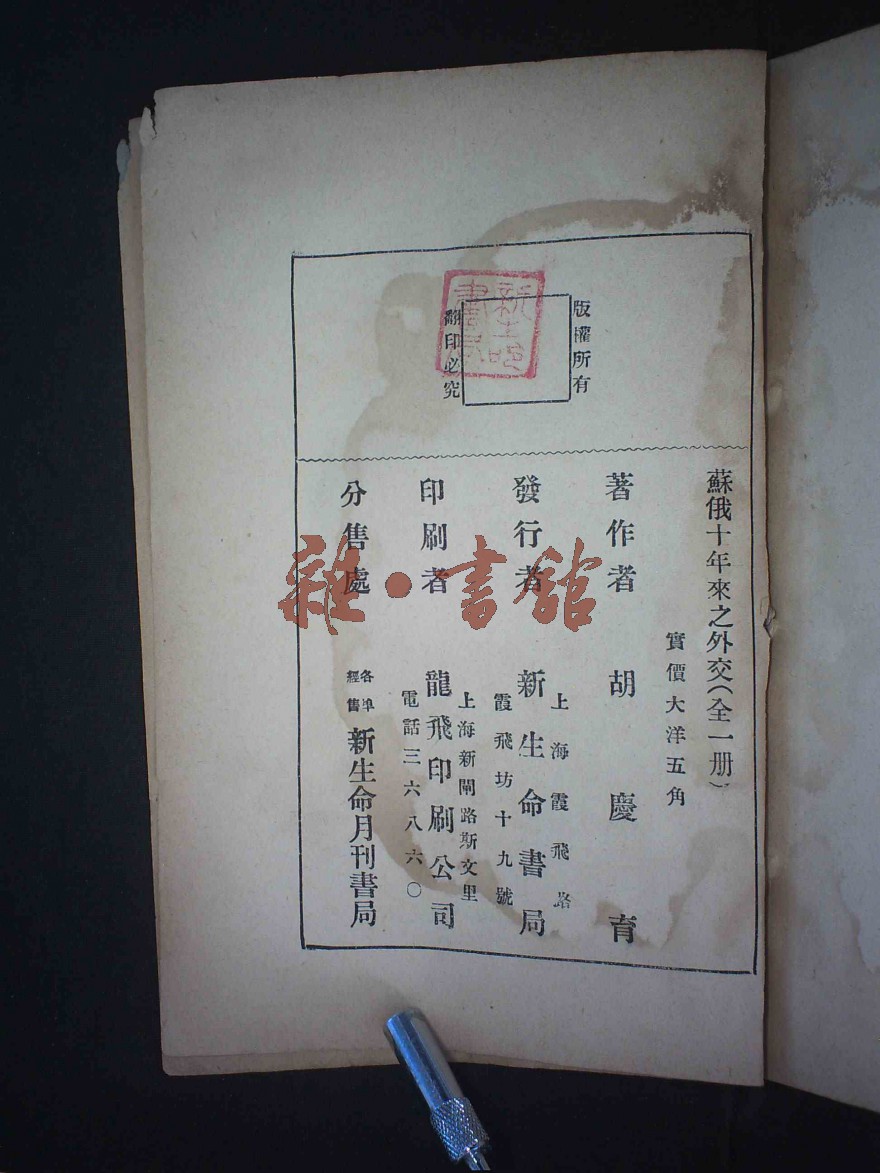 版權所有
翻印必究
新生命書局
蘇俄十年來之外交(全一册)
實價大洋五角
著作者 胡慶育
發行者 新生命書局
上海霞飛路
霞飛坊十九號
印刷者 龍飛印刷公司
上海新閘路斯文里
電話三六八六〇
分售處 各埠經售 新生命月刊書局
雜·書館